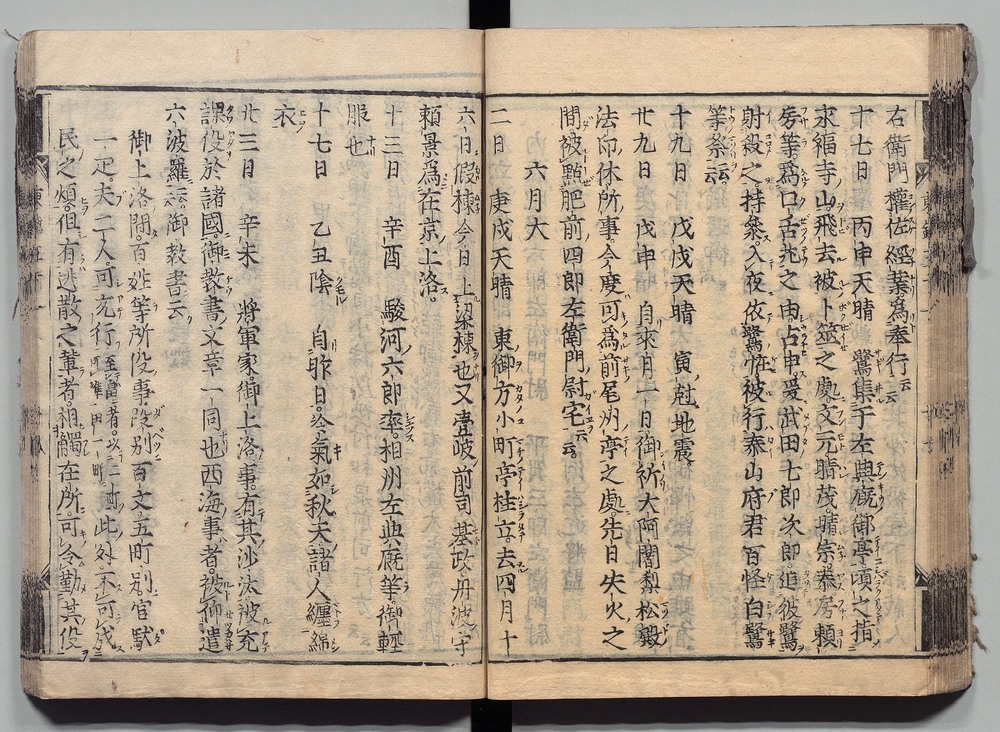 右衛門權佐經業爲奉行云云
十七日　丙申天晴　鷺集于左典廐御亭頃之指
永福寺山飛去被卜筮之處文元晴茂晴宗泰房頼
房等爲口舌兆之由占申爰武田七郎次郎追彼鷺
射殺之持參入夜依鷺恠被行泰山府君百怪白鷺
等祭云云
十九日　戊戌天晴　寅尅地震
廿九日　戊申　自來月一日御祈大阿闍梨松殿
法印休所事今度可爲前尾州亭之處先日失火之
間被點肥前四郎左衛門尉宅云云
六月大
二日　庚戌天晴　東御方小町亭柱立去四月十
六日假棟今日上梁棟也又壹岐前司基政丹波守
頼景爲在京上洛
十三日　辛酉　駿河六郎率相州左典廐等御輕
服也
十七日　乙丑陰　自昨日冷氣如秋天諸人纏綿
衣
廿三日　辛未　將軍家御上洛事有其沙汰被充
課役於諸國御教書文章一同也西海事者被仰遣
六波羅云云御教書云
御上洛間百姓等所役事段別百文五町別官駄
一疋夫二人可充行至富者以上二町可准一町此外不可成
民之煩但有逃散之輩者相觸在所可令勤其役